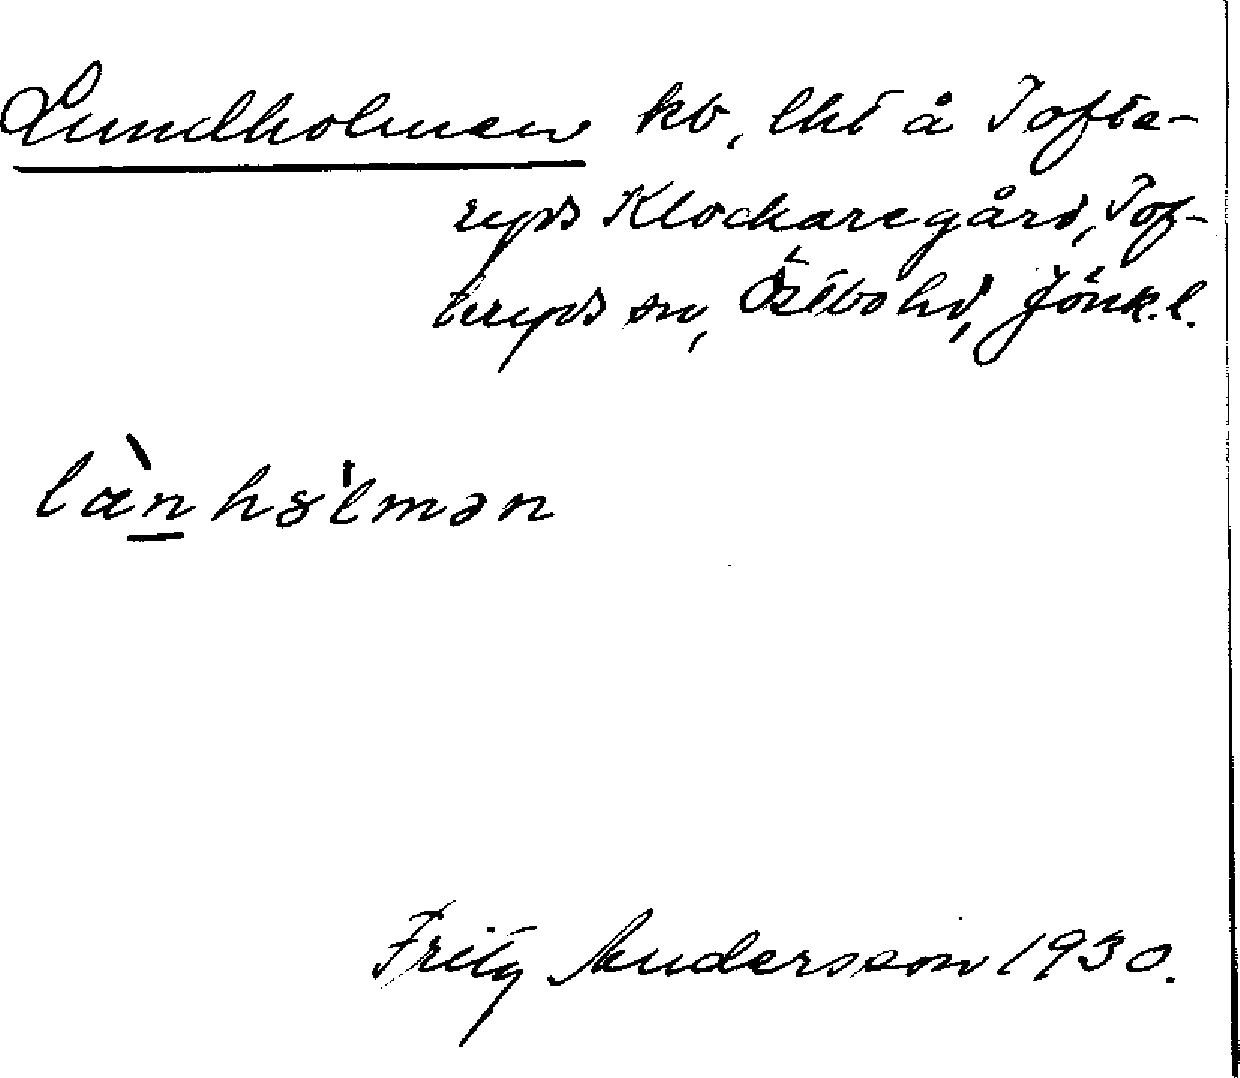 Lundholmen kv, lht å Tofta-
ryds Klockaregård, Tof-
teryds sn, Östbo hd, Jönk.l.
læ̀nhɷ̀lmən
Fritz Andersson 1930.